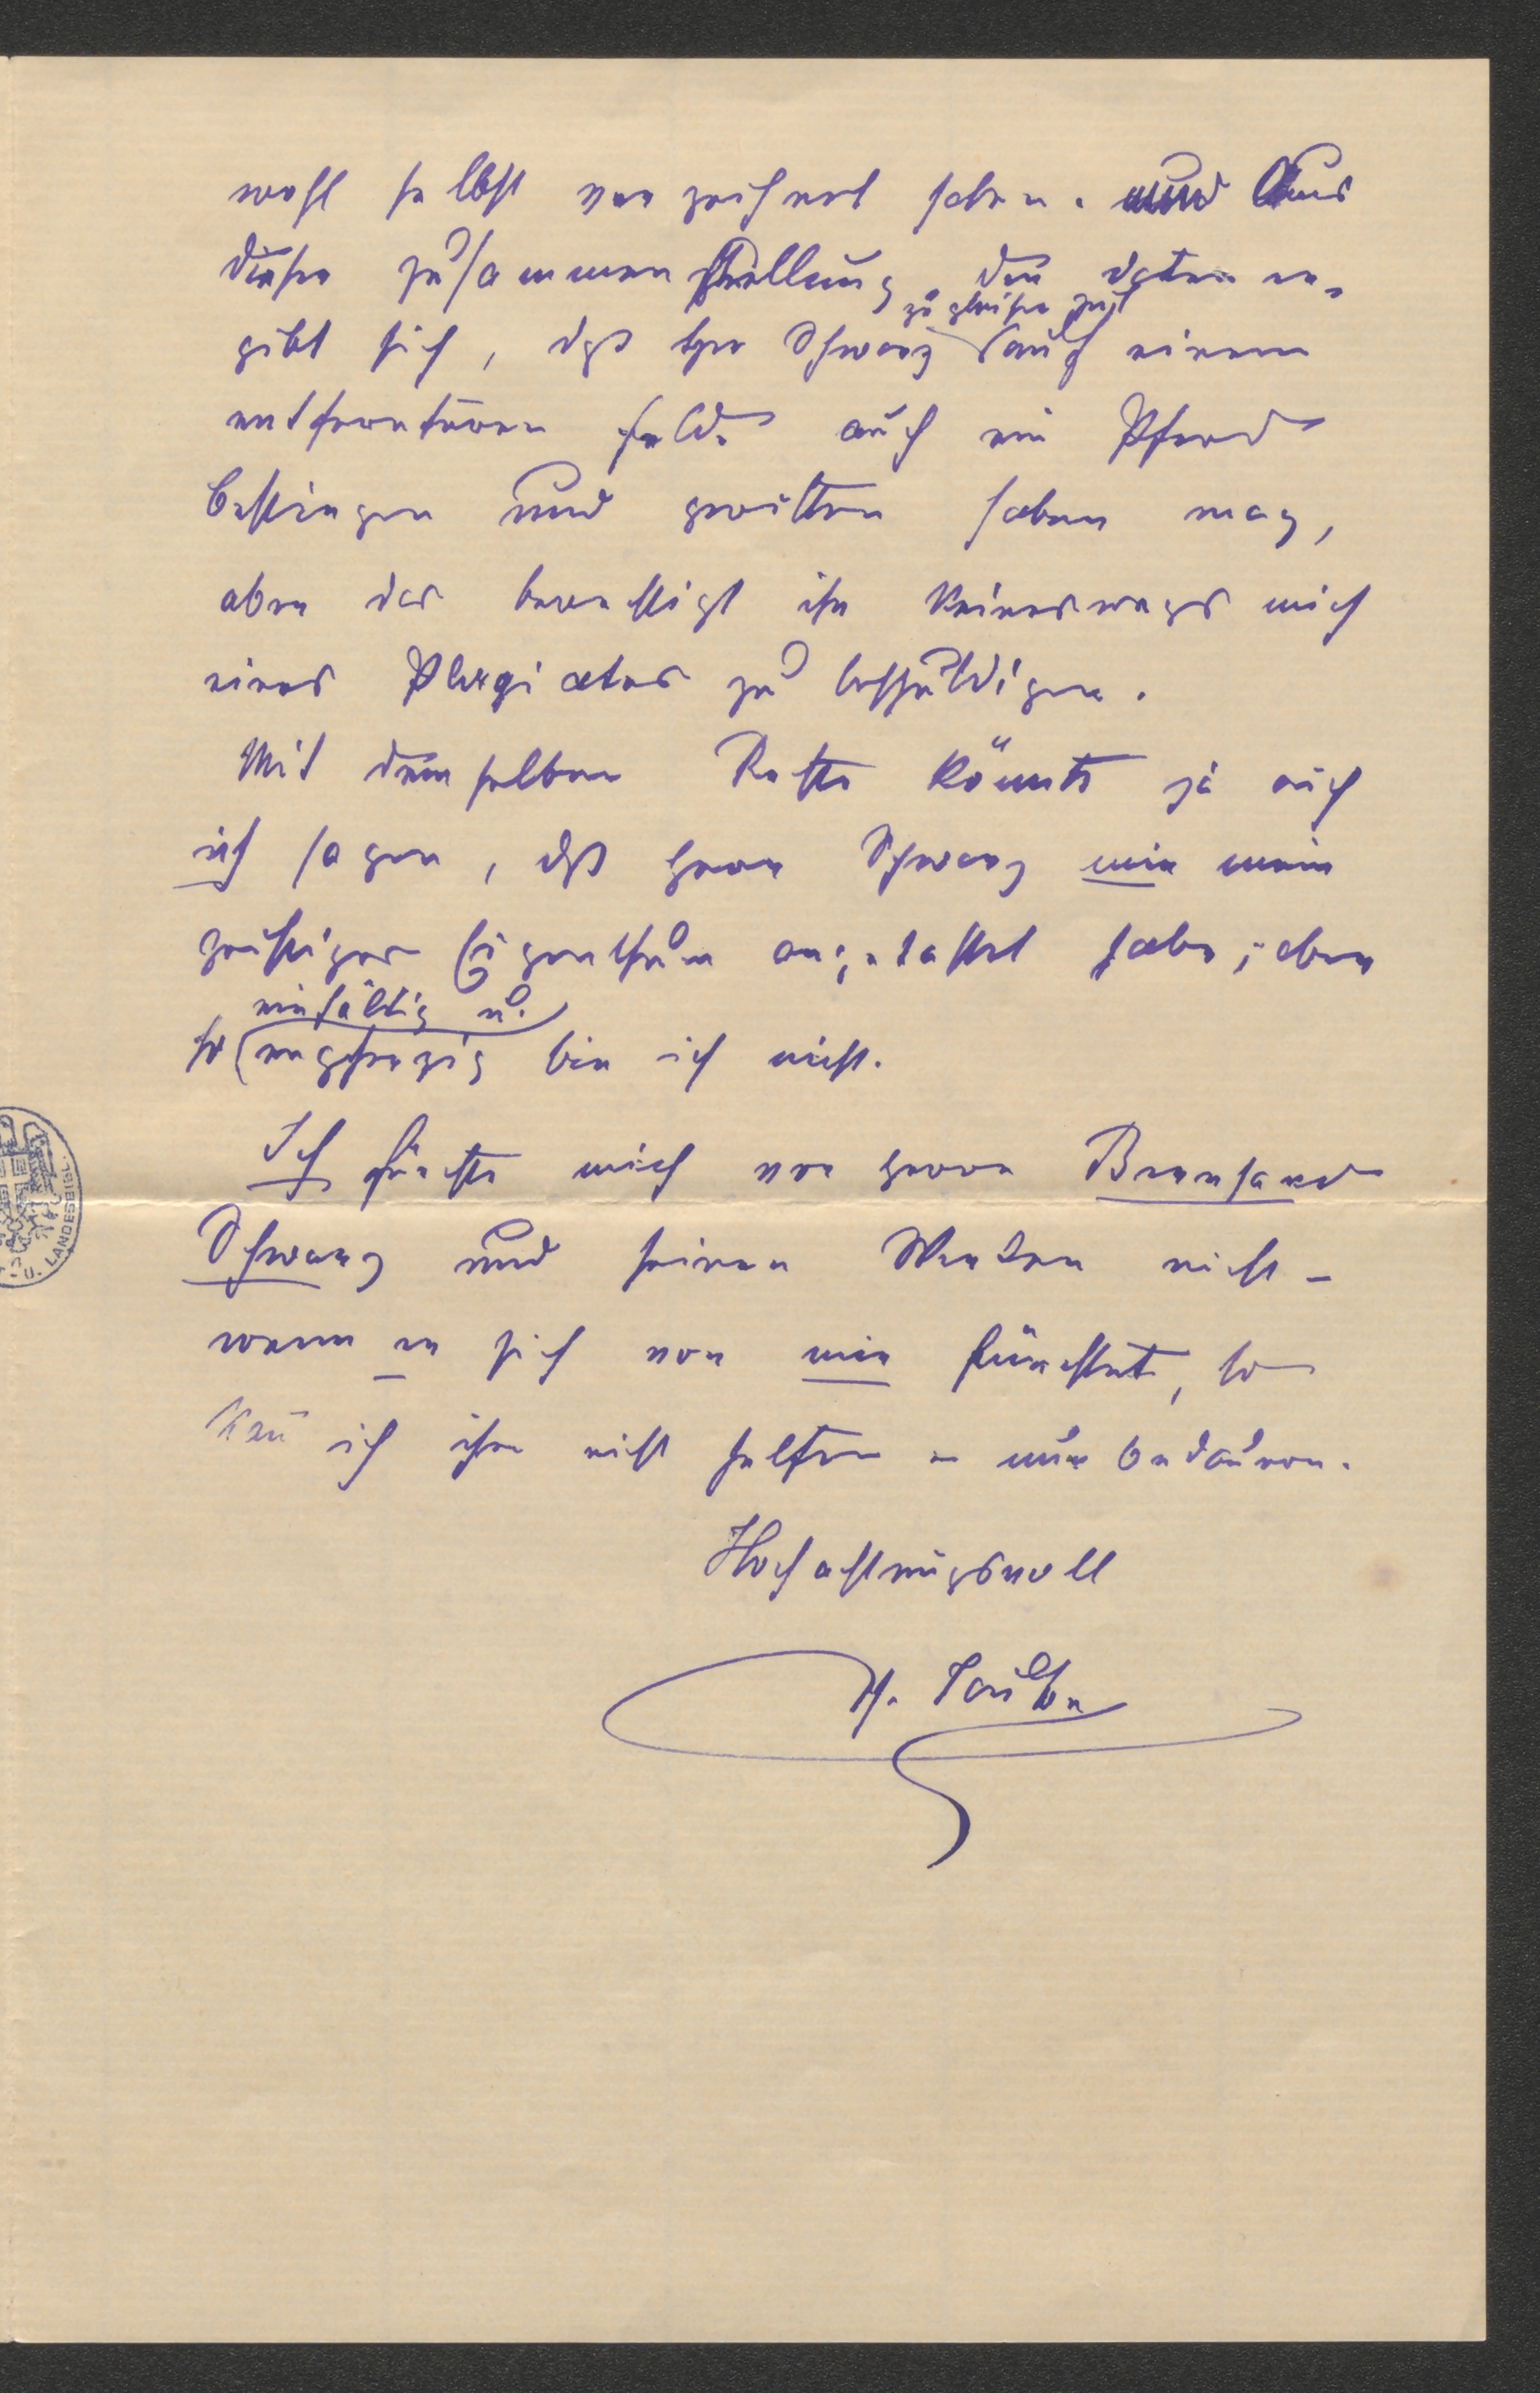 wohl selbst verzeichnet haben. und Aus
dieser Zusammenstellung der Daten er-
gibt sich, daß Hr Schwarz zu gleicher Zeit auf einem
entfernteren Felde auch ein Pferd
bestiegen und geritten haben mag,
aber das berechtigt ihn keineswegs mich
eines Plagiates zu beschuldigen.
Mit demselben Rechte könnte ja auch
ich sagen, daß Herr Schwarz mir mein
geistiges Eigenthum angetastet habe; aber
so einfältig u. engherzig bin ich nicht.
Ich fürchte mich vor Herrn Bernhard
Schwarz und seinen Werken nicht –
wenn er sich vor mir fürchtet, so
kann ich ihm nicht helfen – nur bedauern.
Hochachtungsvoll
U. LANDESBIBL.